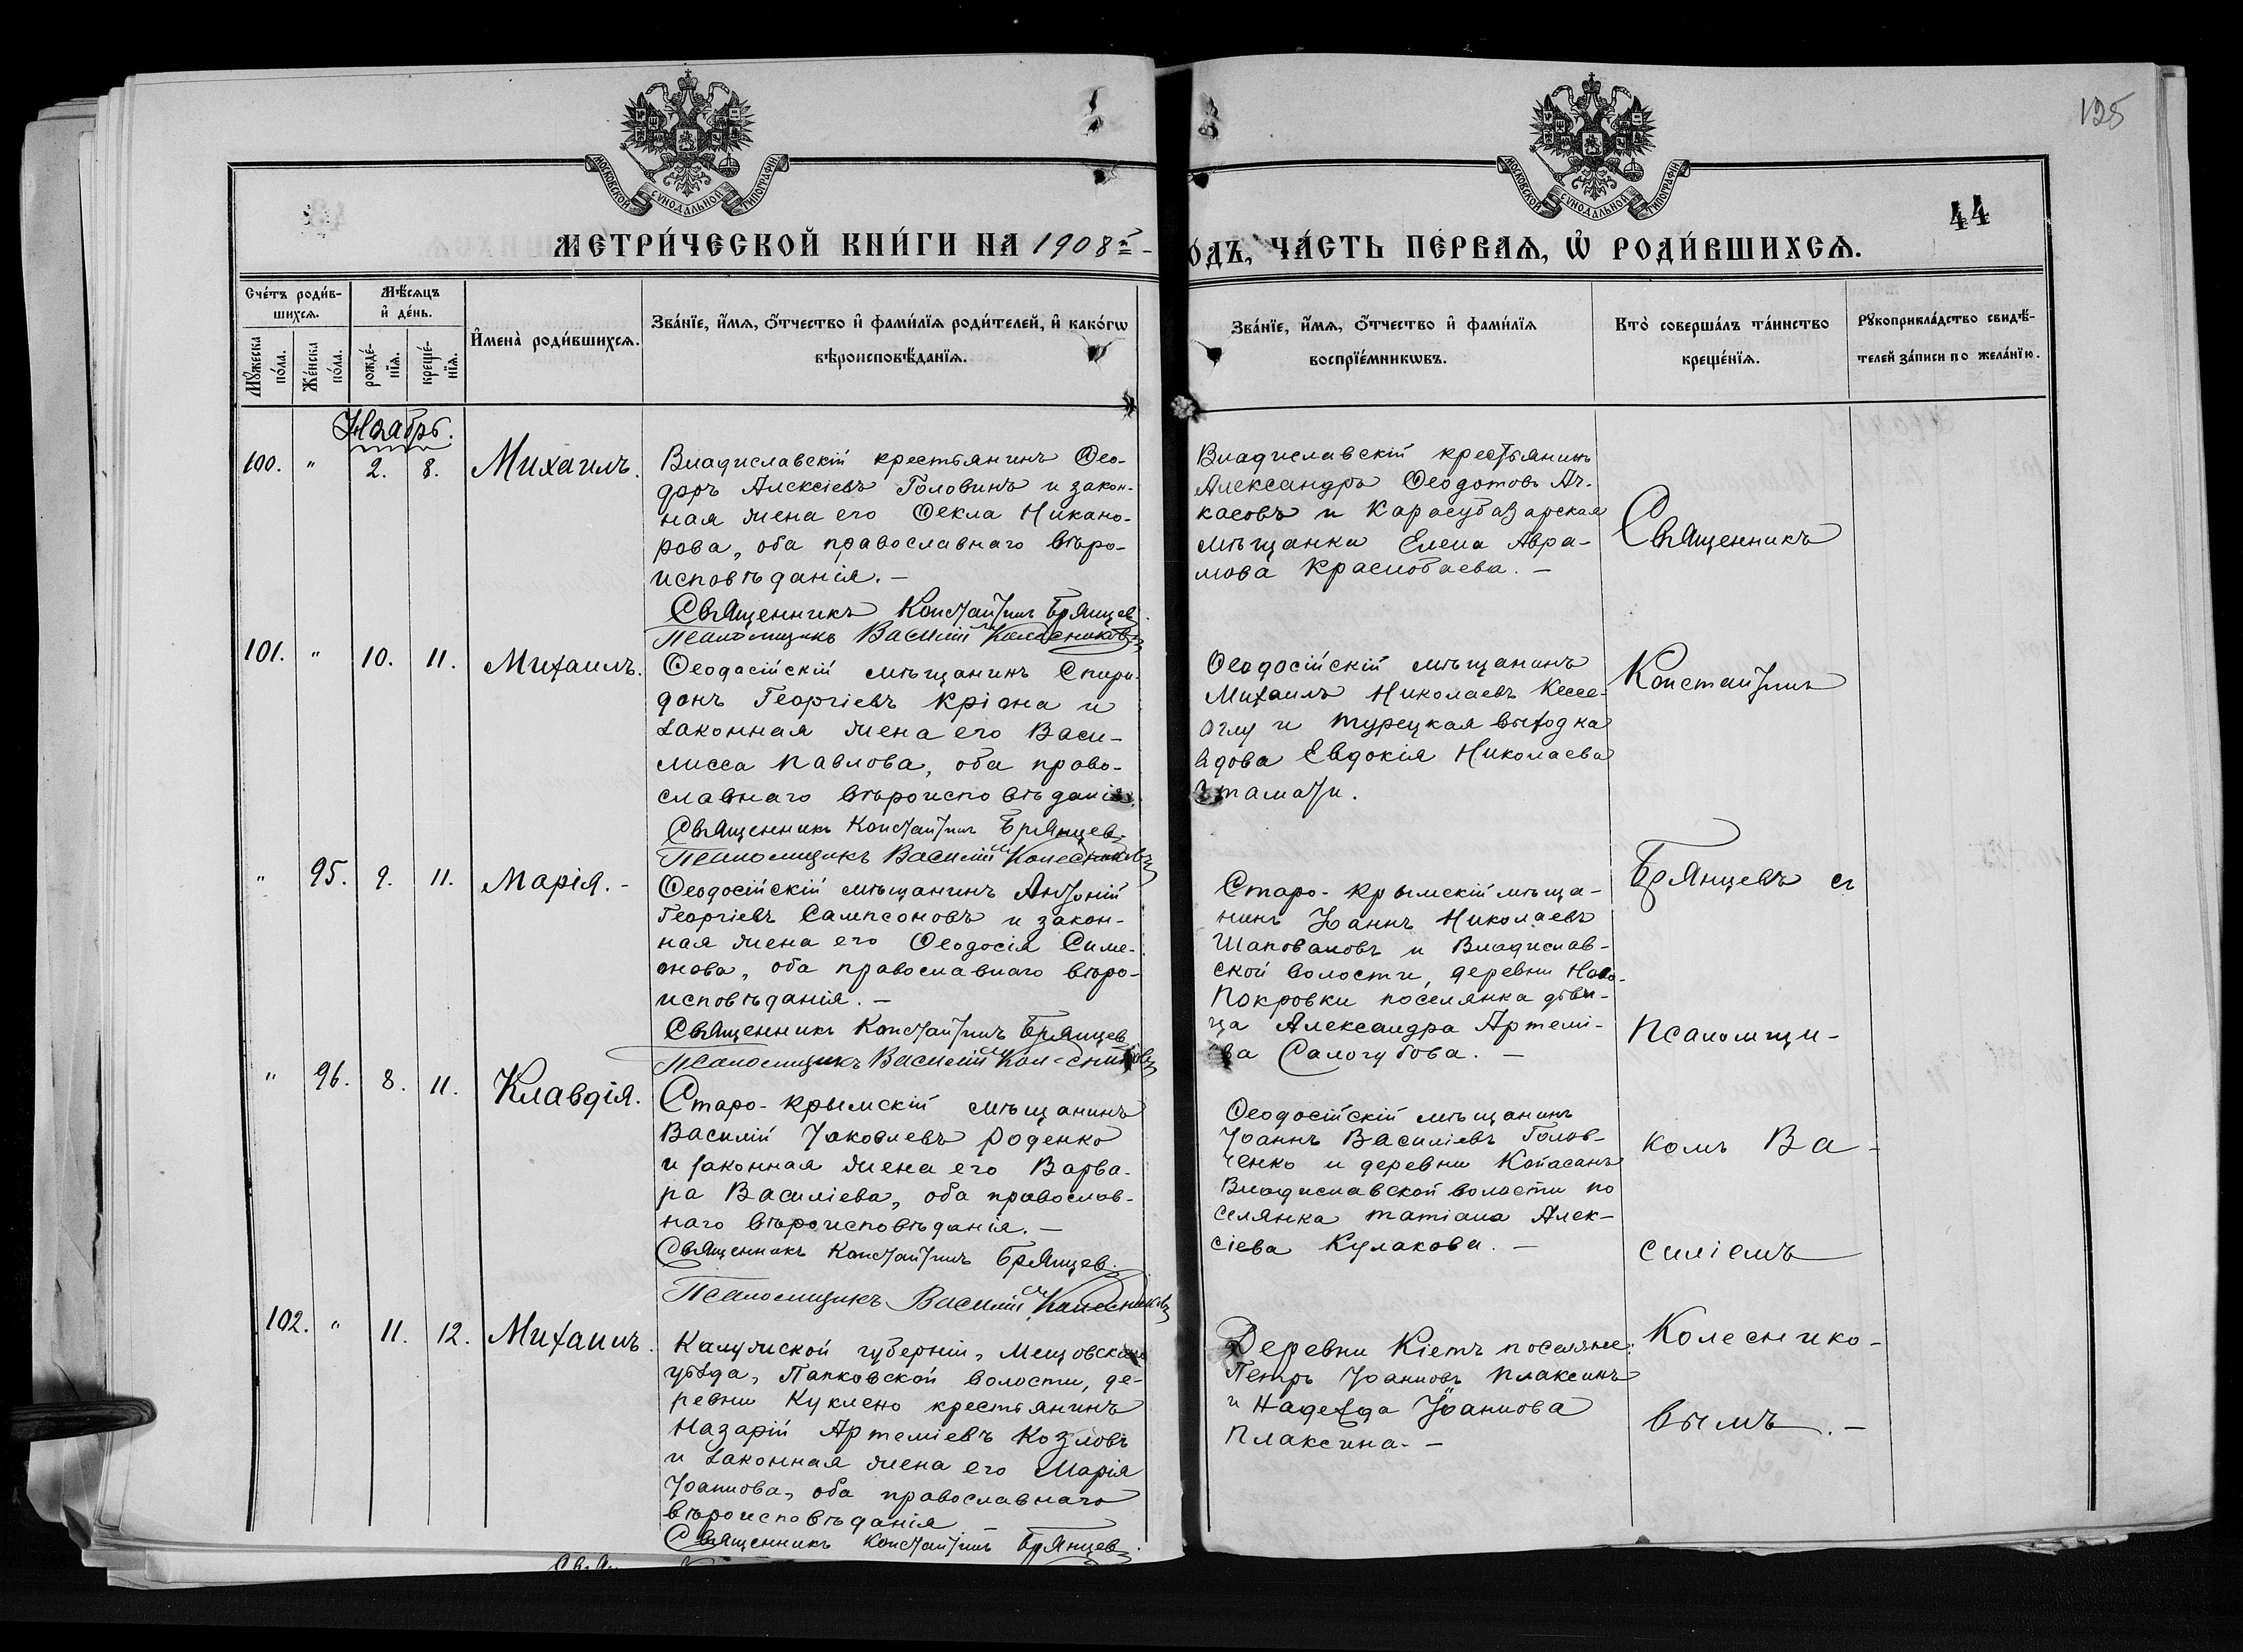 125
44
МОСКОВСКОЙ СѴНОДАЛЬНОЙ ТИПОГРАФІИ
МОСКОВСКОЙ СѴНОДАЛЬНОЙ ТИПОГРАФІИ
МЕТРИ́ЧЕСКОЙ КНИ́ГИ НА 1908й
ОДЪ, ЧА́СТЬ ПЕ́РВАѦ, Ѿ РОДИ́ВШИХСѦ.
Сче́тъ роди́в-
шихсѧ.
Мꙋ́жеска по́ла.
Же́нска по́ла.
Мѣ́сѧцъ
и҆ де́нь.
рожде́-
нїѧ.
креще́-
нїѧ.
И҆мена̀ роди́вшихсѧ.
Зва́нїе, и҆́мѧ, ѻ҆́тчество и҆ фами́лїѧ роди́телей, и҆ како́гѡ
вѣроисповѣ́данїѧ.
Зва́нїе, и҆́мѧ, ѻ҆́тчество и҆ фами́лїѧ
воспрїе́мникѡвъ.
Кто̀ соверша́лъ та́инство
креще́нїѧ.
Рꙋкоприкла́дство свидѣ́-
телей за́писи по жела́нїю.
Ноябрь.
100. " 2. 8. Михаилъ.
Владиславскій крестьянинъ Ѳео-
доръ Алексіевъ Головинъ и закон-
ная жена его Ѳекла Никано-
рова, оба православнаго вѣро-
исповѣданія. —
Священникъ Константинъ Брянцевъ
Псаломщикъ Василій Колесниковъ
Владиславскій крестьянинъ
Александръ Ѳеодотовъ Ач-
касовъ и Карасубазарская
мѣщанка Елена Авра-
мова Краснобаева. —
101. " 10. 11. Михаилъ.
Ѳеодосійскій мѣщанинъ Спири-
донъ Георгіевъ Кріона и
законная жена его Васи-
лисса Павлова, оба право-
славнаго вѣроисповѣданія.
Священникъ Константинъ Брянцевъ
Псаломщикъ Василій Колесниковъ
Ѳеодосійскій мѣщанинъ
Михаилъ Николаевъ Кесе-
оглу и турецкая выходка
вдова Евдокія Николаева
" 95. 9. 11. Марія. -
Ѳеодосійскій мѣщанинъ Антоній
Георгіевъ Сампсоновъ и закон-
ная жена его Ѳеодосія Симе-
онова, оба православнаго вѣро-
исповѣданія. —
Священникъ Константинъ Брянцевъ
Псаломщикъ Василій Колесниковъ
Старо-Крымскій мѣща-
нинъ Іоаннъ Николаевъ
Шаповаловъ и Владислав-
ской волости, деревни Ново-
Покровки поселянка дѣви-
ца Александра Артемі-
ва Салогубова. —
" 96. 8. 11. Клавдія.
Старо-Крымскій мѣщанинъ
Василій Іаковлевъ Роденко
и законная жена его Варва-
ра Василіева, оба православ-
наго вѣроисповѣданія. —
Священникъ Константинъ Брянцевъ
Псаломщикъ Василій Колесниковъ
Ѳеодосійскій мѣщанинъ
Іоаннъ Василіевъ Голов-
ченко и деревни Копасанъ
Владиславской волости по
селянка Татіана Алек-
сіева Кулакова. —
102. " 11. 12. Михаилъ.
Калужской губерніи, Мещовскаго
уѣзда, Папковской волости, де-
ревни Куклено крестьянинъ
Назарій Артеміевъ Козловъ
и законная жена его Марія
Іоаннова, оба православнаго
вѣроисповѣданія
Священникъ Константинъ Брянцевъ
Деревни Кіетъ поселяне:
Петръ Іоанновъ Плаксинъ
и Надежда Іоаннова
Плаксина. —
Священникъ
Константинъ
Брянцевъ съ
Псаломщи-
комъ Ва-
силіемъ
Колеснико-
вымъ. —